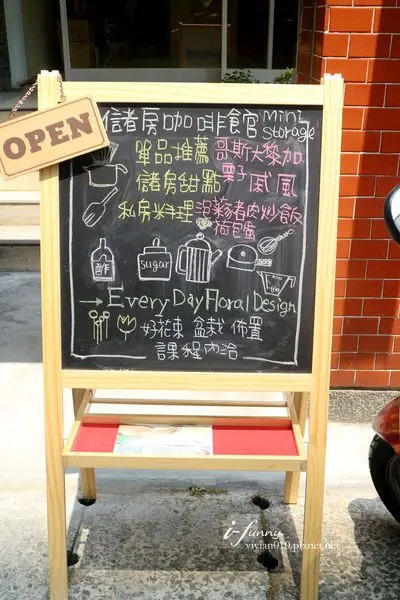 OPEN
儲房咖啡食官 Mini Storage
單品推薦 哥斯大黎加
儲房甜點 栗子戚風
私房料理 泡菜豬肉炒飯
荷包蛋
酢 sugar
→ Every Day Floral Design
好花束 盆栽 佈置
課程內洽
i-funny
vivian019.pixnet.net